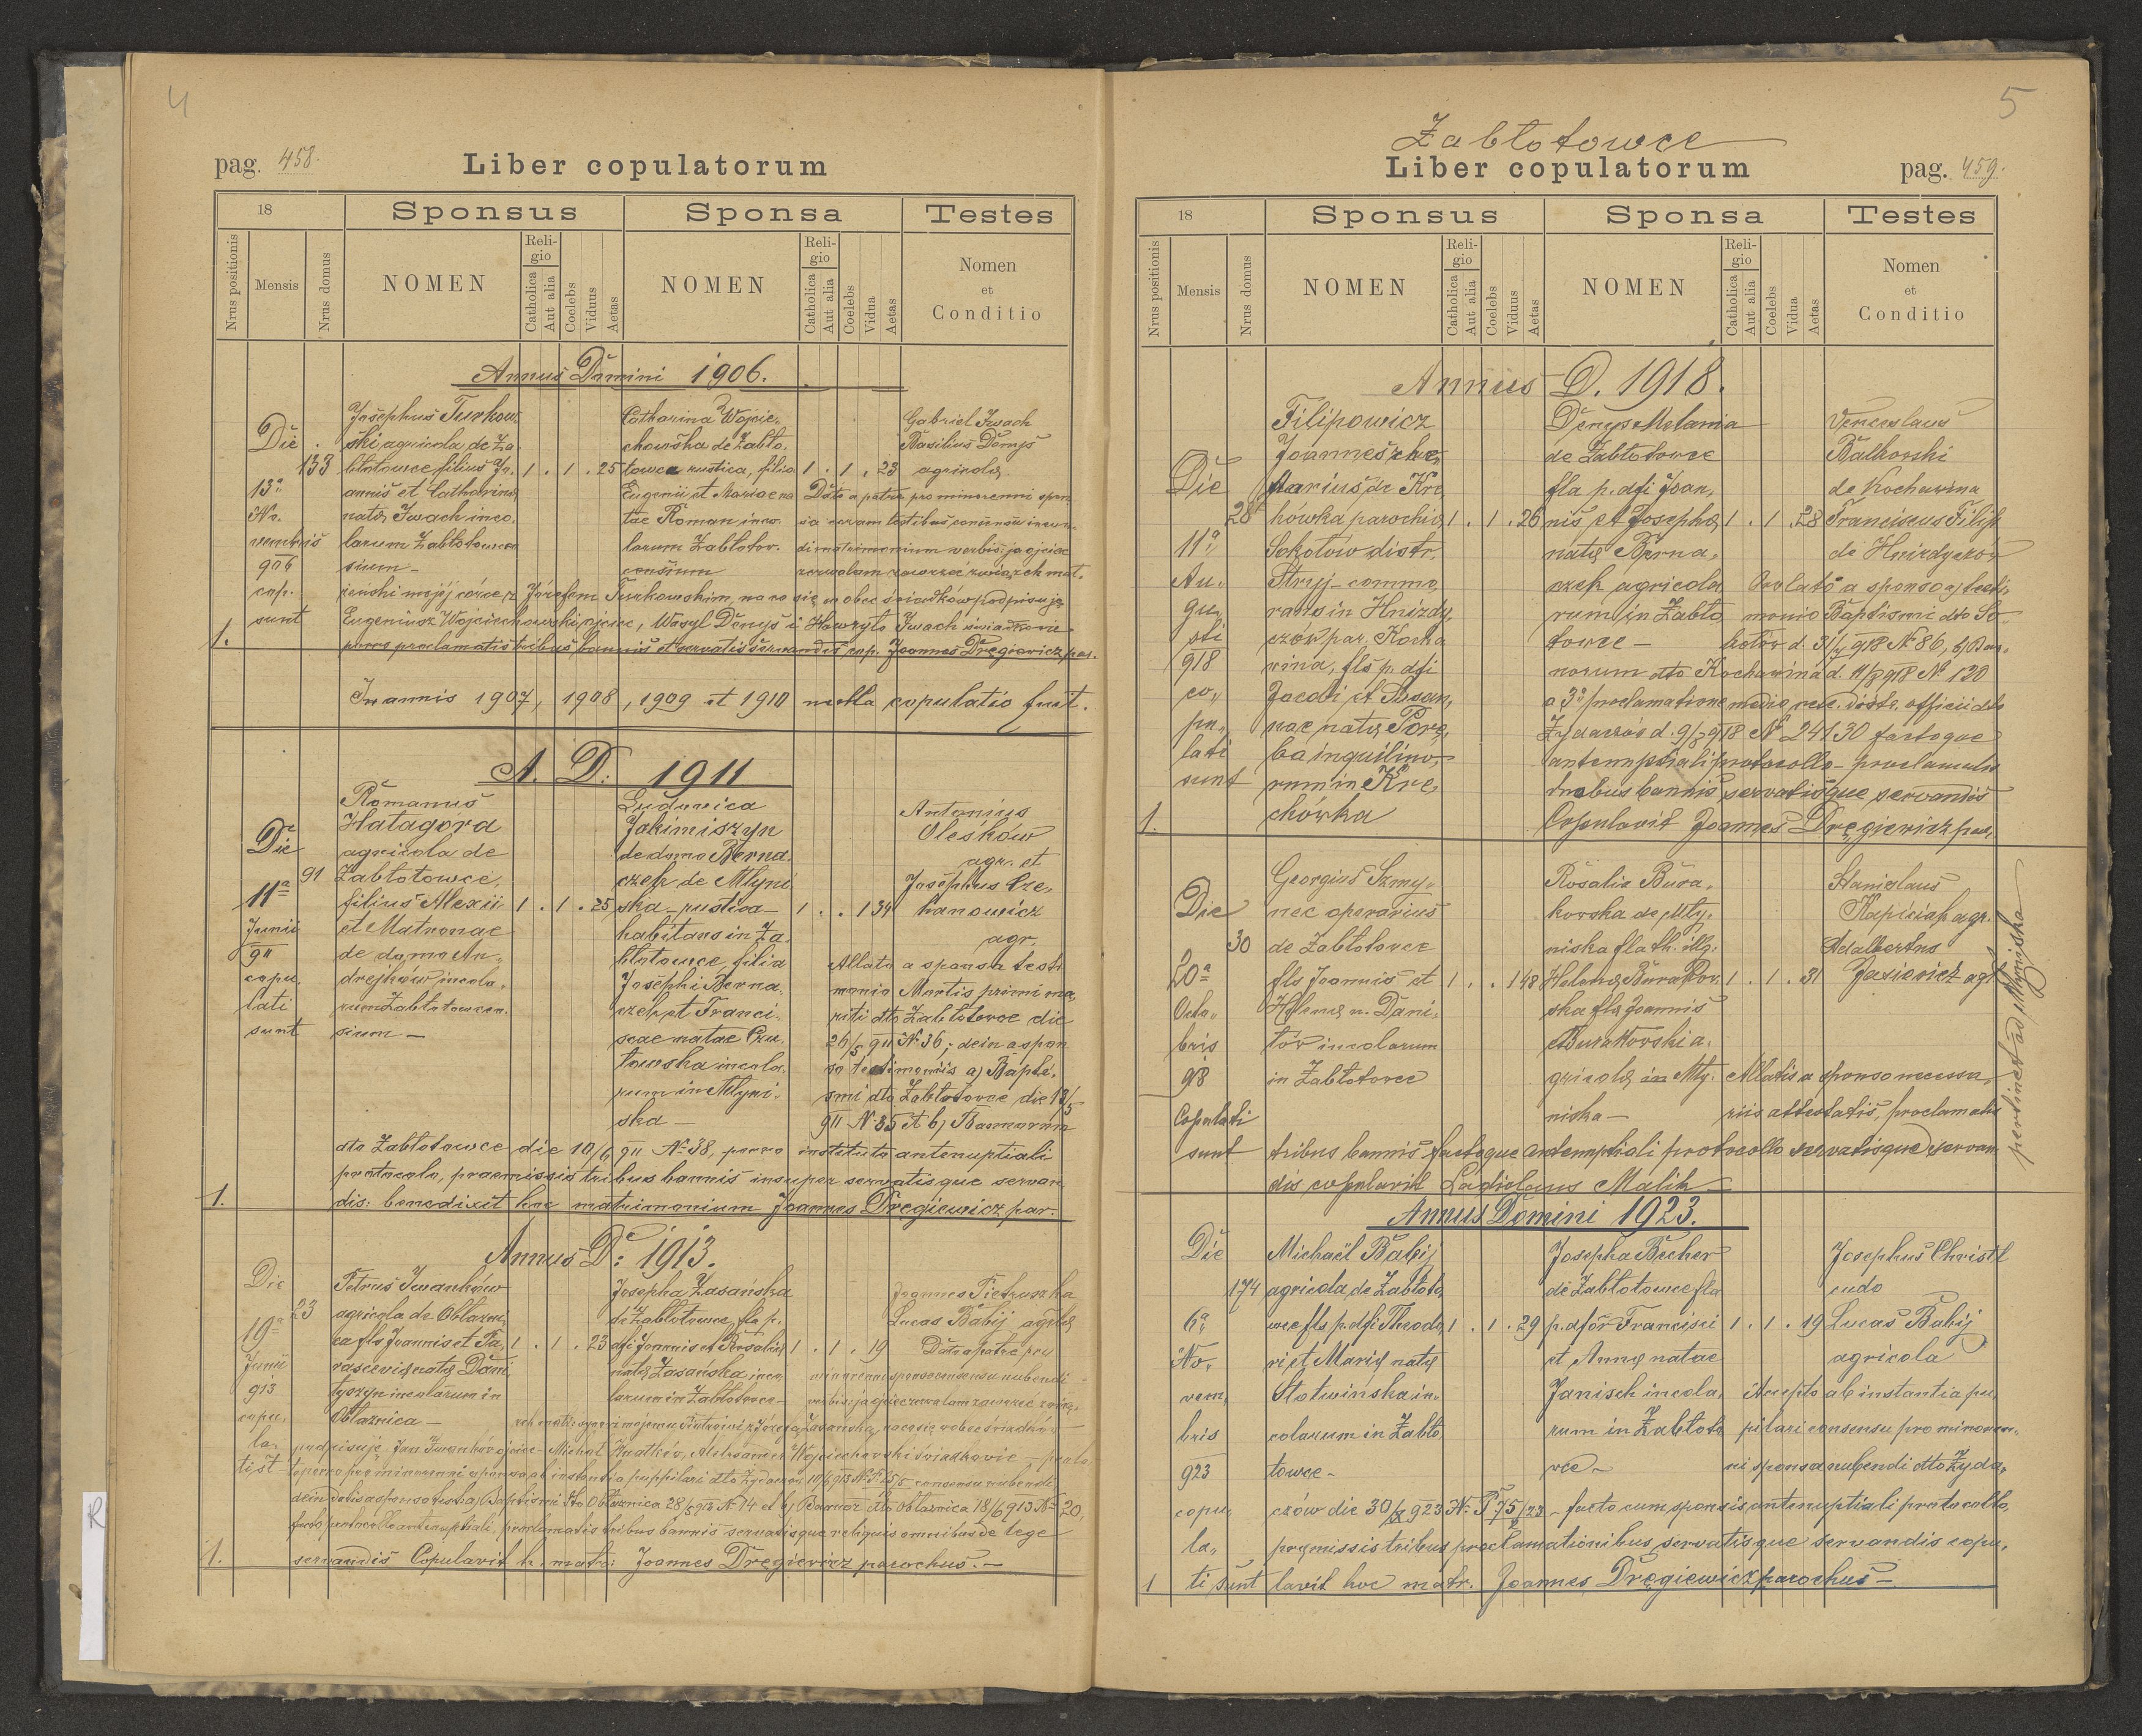 4
pag. 458.
Liber copulatorum
18
Sponsus
Sponsa
Testes
Nrus positionis
Mensis
Nrus domus
NOMEN
Religio
Catholica
Aut alia
Coelebs
Viduus
Aetas
NOMEN
Religio
Catholica
Aut alia
Coelebs
Vidua
Aetas
Nomen
et
Conditio
Annus Domini 1906.
Die
13a
No.
vembris
906
cop.
sunt
1.
133
Josephus Turkow.
ski agricola de Za
błotowce filius Jo.
annis et Catharinæ
natæ Iwach inco.
larum Zabłotowcen
sium -
1 . 1 . 25
Catharina Wojcie.
chowska de Zabło.
towce rustica, filia
Eugenii et Mariae na
tae Roman inco.
larum Zabłotow.
censium
1 . 1 . 23
Gabriel Iwach
Basilius Denys
agricolæ
Dato a patre pro minorenni spon
sa coram testibus consensu ineun.
di matrimonium verbis: ja ojciec
zezwalam zawrzeć związek mał.
żeński mojej córce z Józefem Turkowskim, na co się w obec świadków podpisuję
Eugeniusz Wojciechowski ojciec, Wasyl Denys i Hawryło Iwach świadkowie
porro proclamatis tribus bannis et servatis servandis cop. Joannes Dręgiewicz par.
In annis 1907, 1908, 1909 et 1910 nulla copulatio fuit.
A. D. 1911
Die
11a
Junii
911
copu
lati
sunt
1.
91
Romanus
Hatagóra
agricola de
Zabłotowce,
filius Alexii
et Matronae
de domo An„
drejków incola.
rum Zabłotowcen.
sium -
1 . 1 . 25
Ludovica
Jakimiszyn
de domo Berna.
czek de Młyni
ska - rustica -
habitans in Za.
błotowce filia
Josephi Berna.
czek et Franci.
scae natae Czu.
towska incola.
rum in Młyni.
ska -
1 . . 1 34
Antonius
Oleśków
agr. et
Josephus Cze,
hanowicz
agr.
Allato a sponsa testi
monio Mortis primi ma,
riti dto Zabłotowce die
26/5 911 N. 36; dein a spon
so testimoniis a) Baptis.
smi dto Zabłotowce die 13/5
911 N 35 et b) Bannorum
dto Zabłotowce die 10/6 911 N. 38, porro instituto antenuptiali
protocolo, praemissis tribus bannis insuper servatisque servan
dis: benedixit hoc matrimonium Joannes Dręgiewicz par.
Annus D. 1913.
Die
19a
Junii
913
copu.
la.
ti st
1.
23
Petrus Iwanków
agricola de Obłaźni,
ca fls Joannis et Pa,
rascewiæ natæ Dani
tyszyn incolarum in
Obłaźnica -
1 . 1 . 23
Josepha Zasańska
de Zabłotowce, fla p.
dfi Joannis et Rosaliæ
natæ Zasańska inco
larum in Zabłotowce -
1 . 1 . 19
Joannes Pietruszka
Lucas Babij agrlæ
Dato a patre pro
minorenni sponso consensu nubendi
verbis: ja ojciec zezwalam zawrzeć zwią.
zek małż: synowi mojemu Piotrowi z Józefą Zasańską, na co się w obec świadków
podpisuję Jan Iwanków ojciec - Michał Hnatków, Aleksander Wojciechowski świadkowie,
porro pro minorenni sponsa ab instantia pupillari dto Żydaczów 10/6 913 consensu nubendi
dein datis a sponso testis a) Baptismi dto Obłaźnica 28/5 913 N 14 et b) Bannor dto Obłaźnica 18/6 913 N 20,
facto protocollo antenuptiali, proclamatis tribus bannis servatisque reliquis omnibus de lege
servandis Copulavit h. matr: Joannes Dręgiewicz parochus. -
5
Zabłotowce
Liber copulatorum
pag. 459.
18
Sponsus
Sponsa
Testes
Nrus positionis
Mensis
Nrus domus
NOMEN
Religio
Catholica
Aut alia
Coelebs
Viduus
Aetas
NOMEN
Religio
Catholica
Aut alia
Coelebs
Vidua
Aetas
Nomen
et
Conditio
Annus D. 1918.
Die
11a
Au„
gu„
sti
918
co„
pu„
lati
sunt
1.
28
Filipowicz
Joannes
de Kre,
chówka parochiæ
Sokołów distr.
Stryj - commo,
rans in Hnizdy,
czów par. Kocha
wina, fls p. dfi
Jacobi et Susan,
nae natæ Porę,
ba inquilino,
rum in Kre,
chówka
1 . 1 . 26
Denys Melania
de Zabłotowce
fla p. dfi Joan,
nis et Josephæ
natæ Berna,
czek agricola
rum in Zabło
towce -
1 . 1 . 28
Venceslaus
Bałkowski
de Kochawina
Franciscus Filip
de Hnizdyczów
Oblato a sponso a) testi,
monio Baptismi dto So
kołów d. 31/7 918 N 86, b) Ban,
norum dto Kochawina d. 11/8 918 N 120
a 3a proclamatione medio rese. distr. officii dto
Żydaczów d. 9/8 918 N 24130 factoque
antenuptiali protocollo - proclamatis
duobus bannis servatisque servandis
Copulavit Joannes Dręgiewicz par.
Die
20a
Octo„
bris
918
Copulati
sunt
30
Georgius Szmy„
nec operarius
de Zabłotowce
fls Joannis et
Helenæ n. Dani,
łów incolarum
in Zabłotowce
1 . . 1 48
Rosalia Bura,
kowska de Mły,
niska fla th. illg.
Helenæ Burakow,
ska fla Joannis
Burakowski a.
gricolæ in Mły:
niska -
1 . 1 . 31
Stanislaus
Kapiciak agr.
Adalbertus
Gasiewicz agr
pertinet ad Młyniska
Allatis a sponso necessa,
riis attestatis, proclamatis
tribus bannis factoque antenuptiali protocollo servatisque servan
dis copulavit Ladislaus Malik
Annus Domini 1923.
Die
6a
No,
vem,
bris
923
copu,
la„
ti sunt
1
174
Michaël Babij
agricola de Zabłoto,
wce fls p. dfi Theodo
ri et Mariæ natæ
Słotwińska in„
colarum in Zabło
towce -
1 . 1 . 29
Josepha Becher
de Zabłotowce fla
p. dfor Francisci
et Annæ natae
Janisch incola,
rum in Zabłoto
wce -
1 . 1 . 19
Josephus Christl
cudo
Lucas Babij
agricola
Accepto ab instantia pu,
pilari consensu pro minoren.
ni sponsa nubendi dto Żyda,
czów die 30/ 923 N. P 75/23 - facto cum sponsis antenuptiali protocollo,
præmissis tribus proclamationibus servatisque servandis copu,
lavit hoc matr. Joannes Dręgiewicz parochus -
R